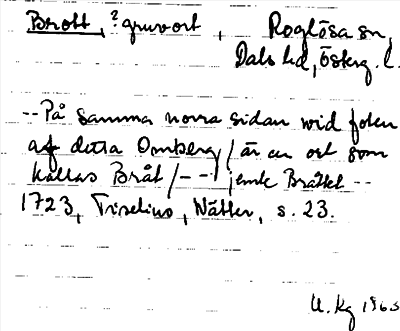 Brott, ? gruvort, Roglösa sn,
Dals hd, Österg. l.
-- På samma norra sidan wid foten
af detta Omberg / är en ort som
kallas Bråt / - - / jemte Bråttet --
1723, Tiselius, Vätter, s. 23.
U. Kg 1963